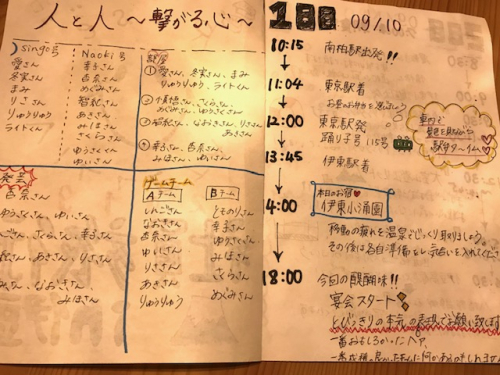 人と人 〜繋がる心〜
Singo号
愛さん
冬実さん
まみ
りささん
りゅうりゅう
ライトくん
Naoki号
幸子さん
杏奈さん
めぐみさん
智紀さん
あきさん
みほさん
さくらさん
ゆうさくくん
ゆいさん
部屋
① 愛さん、冬実さん、まみ
りゅうりゅう、ライトくん
さくらさん、
めぐみさん、ゆうさくさん
なおきさん、りささん
あきさん
④ 幸子さん、杏奈さん、
みほさん、ゆいさん
発言
杏奈さん
ゆいさん
さくらさん、幸子さん
あきさん、りささん
なおきさん、
みほさん
ゲームチーム
Aチーム
しんごさん
なおきさん
杏奈さん
ゆいさん
りささん
あきさん
りゅうりゅう
Bチーム
とものりさん
幸子さん
ゆうさくさん
みほさん
さくらさん
めぐみさん
1日目 09/10
10:15 南柏駅出発!!
11:04 東京駅着
お昼のお弁当を選ぼう
12:00 東京駅発
踊り子号 115号
車内で
駅弁タイム
13:45 伊東駅着
本日のお宿♥
14:00 伊東小涌園
移動の疲れを温泉でじっくり取りましょう。
その後は各自準備をし気合いを入れてくださ
18:00 今回の醍醐味!!
宴会スタート
とびっきりの本気の表現でお願い致しま
一番おもしろかったペア、